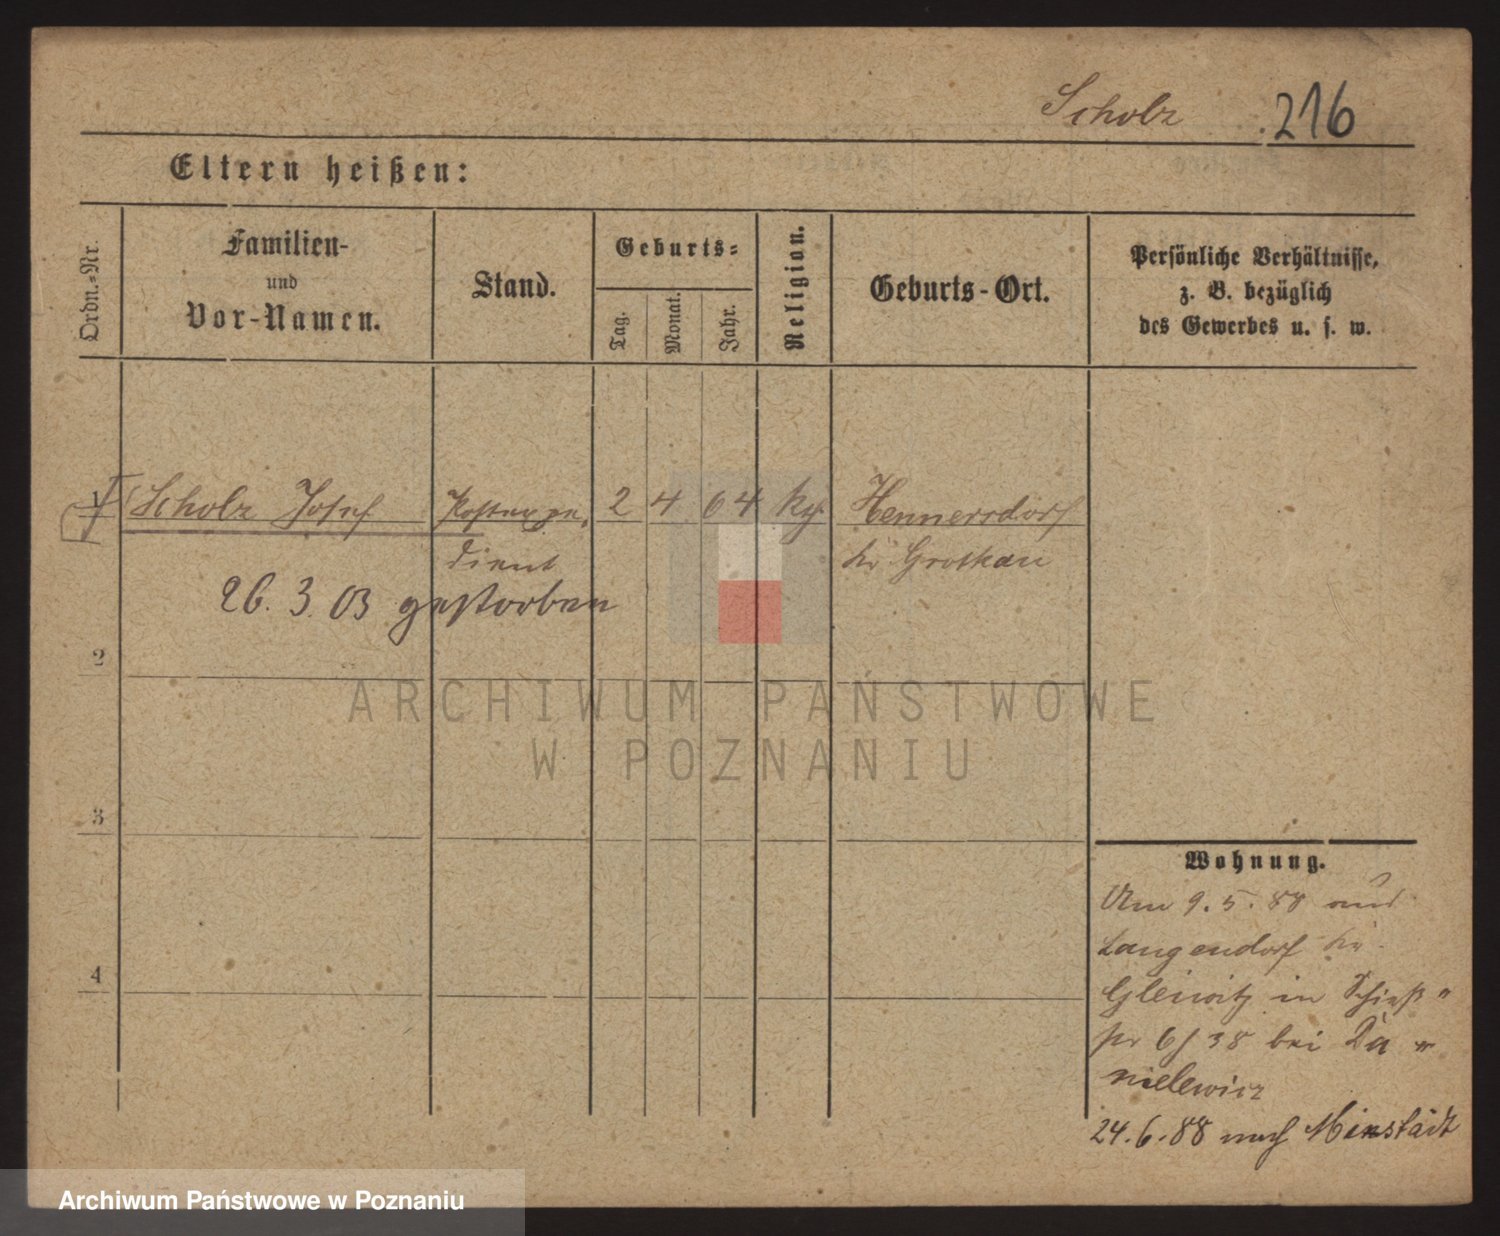 Scholz 216
Eltern heißen:
Ordn.-Nr.
Familien-
und
Vor-Namen.
Stand.
Geburts-
Tag.
Monat.
Jahr.
Religion.
Geburts-Ort.
Persönliche Verhältnisse,
z. B. bezüglich
des Gewerbes u. s. w.
1 Scholz Josef 2 4 64 Hennersdorf
dient Kr Grotkau
26. 3. 03 gestorben
2
ARCHIWUM PAŃSTWOWE
W POZNANIU
3
Wohnung.
Am 9. 5. 88 aus
Langendorf Kr.
Gleiwitz in
bei Da
nielewicz
4
24. 6. 88 nach
Archiwum Państwowe w Poznaniu